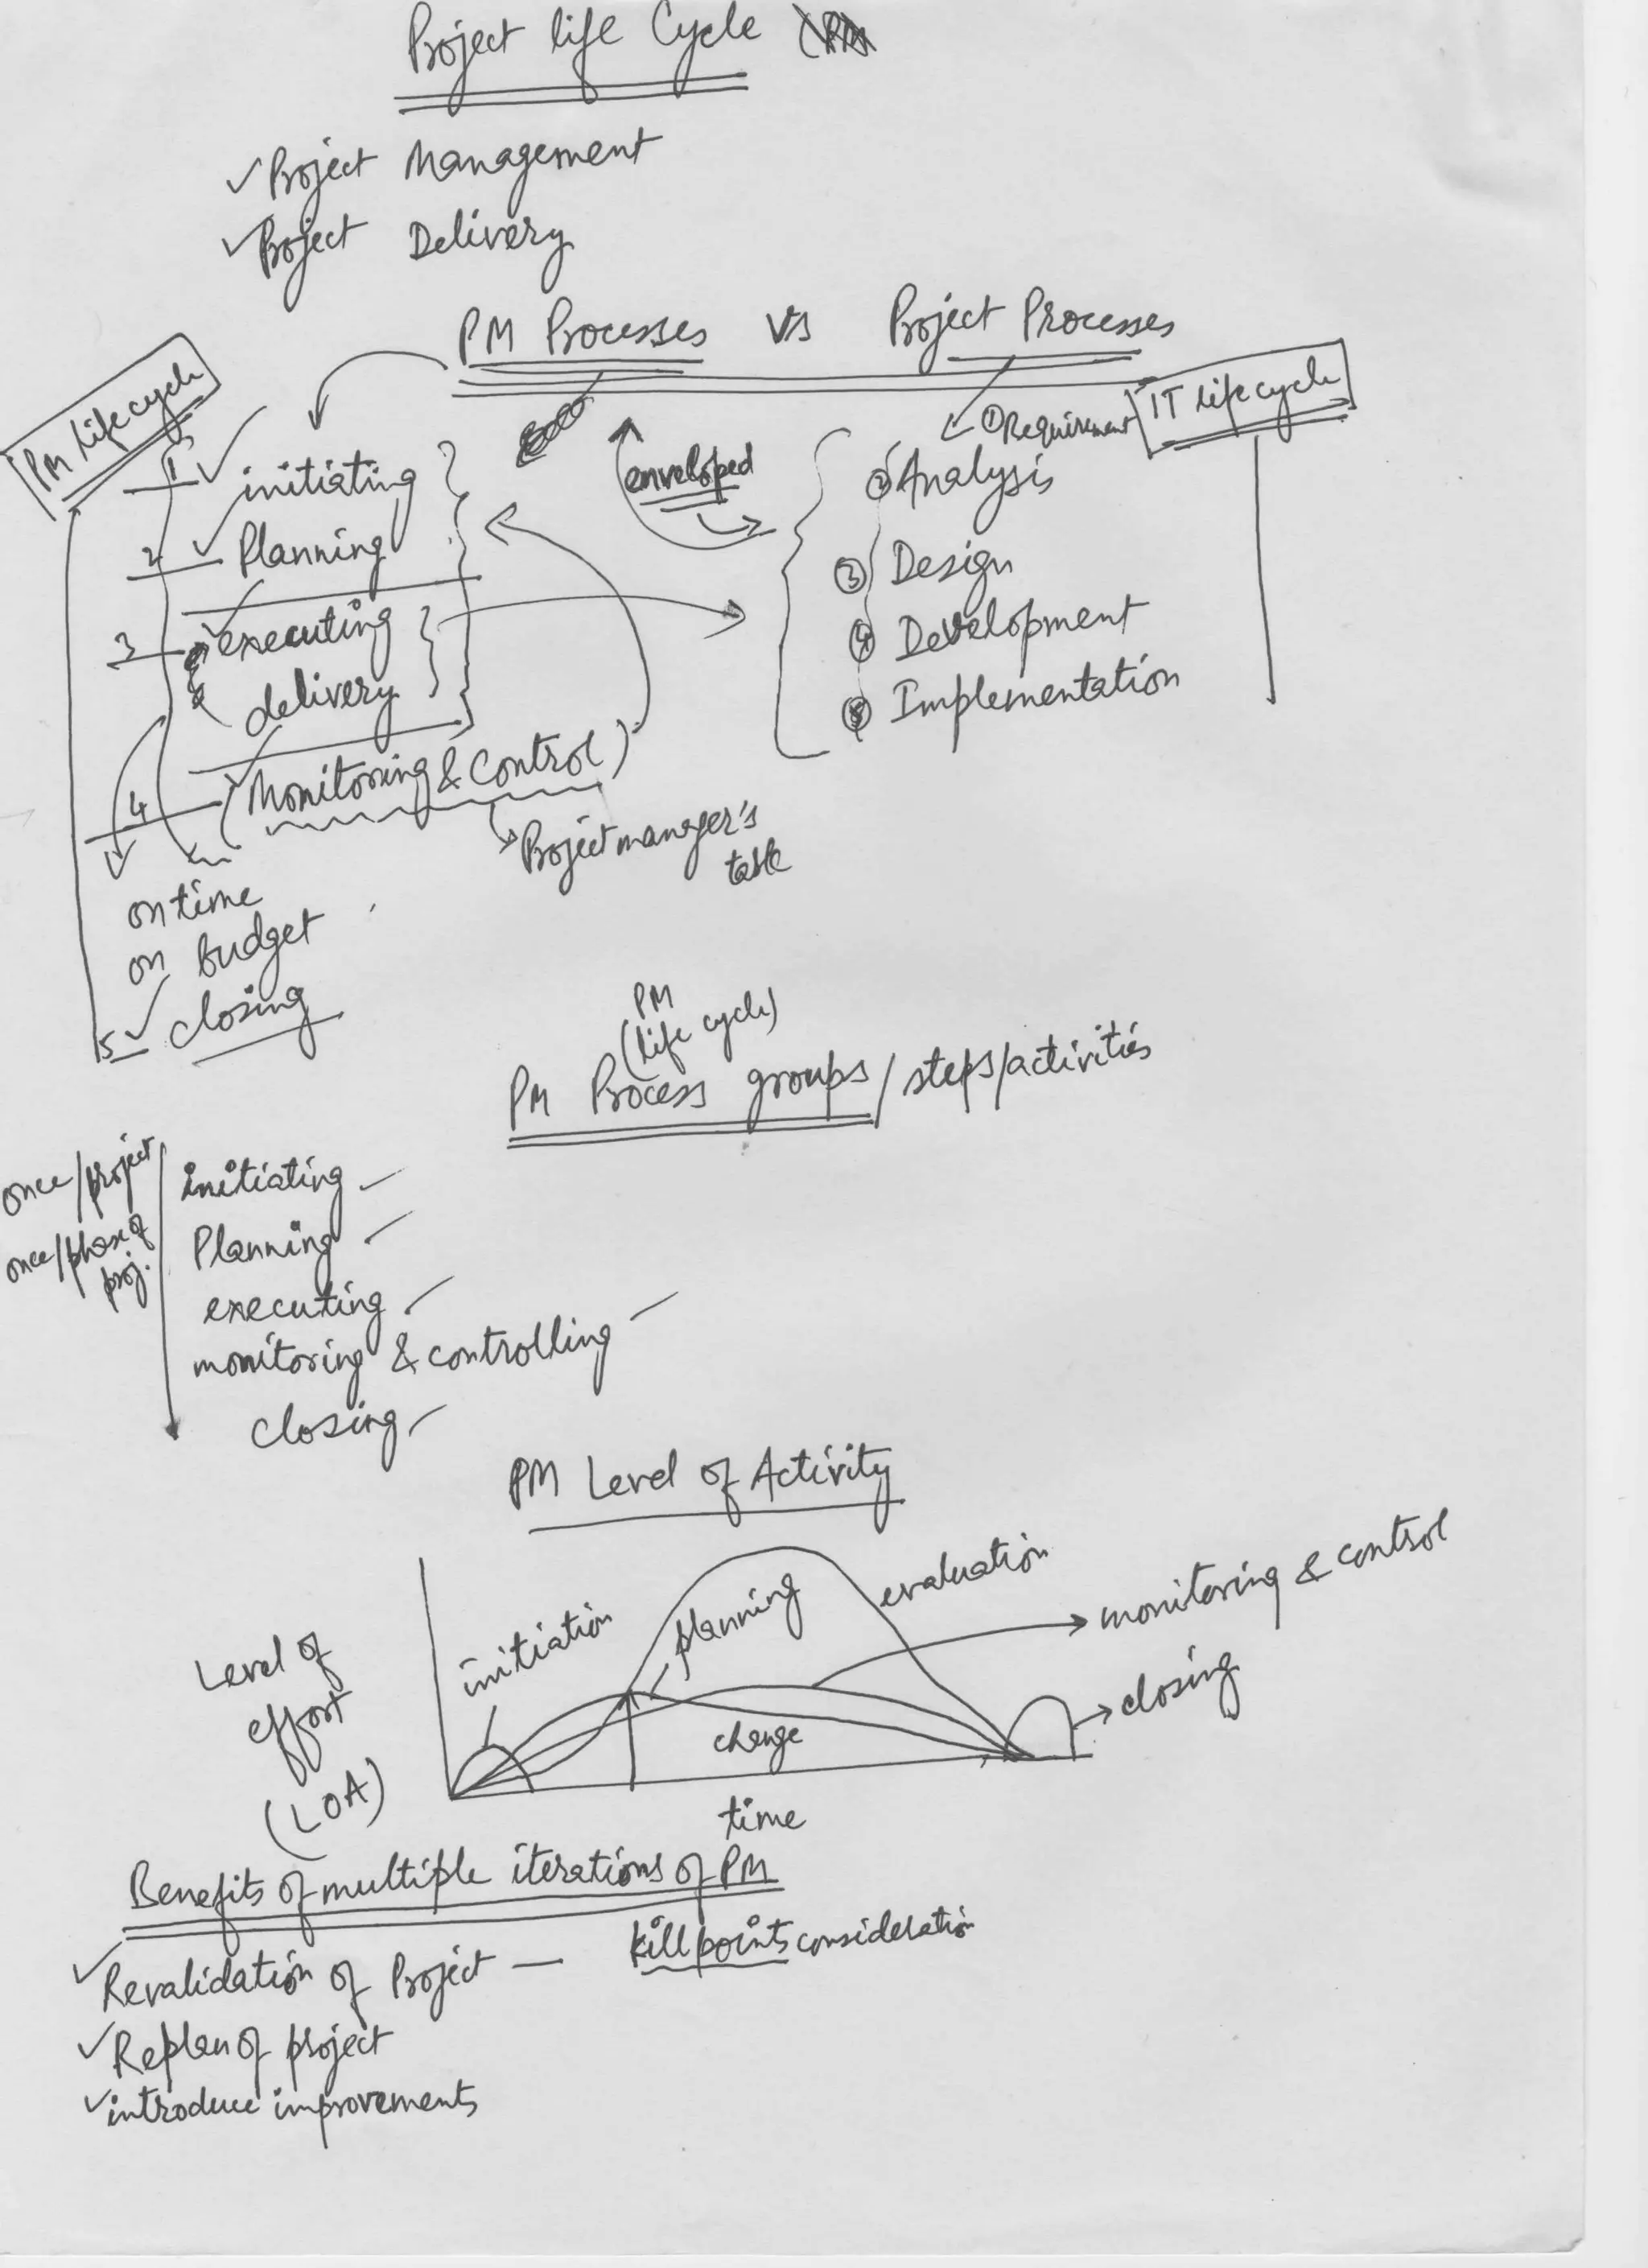 Project life Cycle
✓ Project Management
✓ Project Delivery
PM Processes vs Project Processes
PM life cycle
IT life cycle
① Requirement
1 ✓ initiating
enveloped
② Analysis
2 ✓ Planning
③ Design
3 ✓ executing
④ Development
delivery
⑤ Implementation
4 (Monitoring & Control)
Project manager's
table
on time
on budget
5 ✓ closing
PM
(life cycle)
PM Process groups / steps/activities
once/project
once/phase of
proj.
initiating
Planning
executing
monitoring & controlling
closing
PM Level of Activity
initiation
planning
evaluation
monitoring & control
closing
change
Level of
effort
(LOA)
time
Benefits of multiple iterations of PM
✓ Revalidation of Project — kill points consideration
✓ Replan of project
✓ introduce improvements